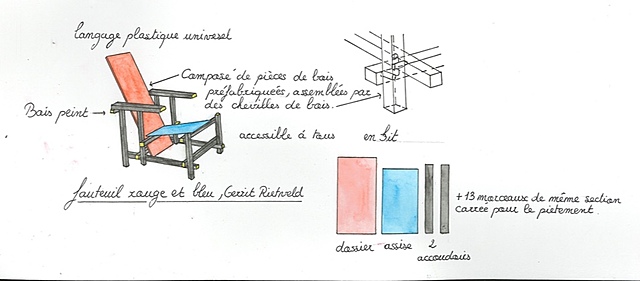 langage plastique univesel
Composé de pièces de bois
préfabriqueés, assemblées par
des chevilles de bois.
Bois peint
accessible à tous
en kit
fauteuil rouge et bleu, Gerrit Rietveld
dossier
assise
2
accoudoirs
+ 13 morceaux de même section
carrée pour le pietement.